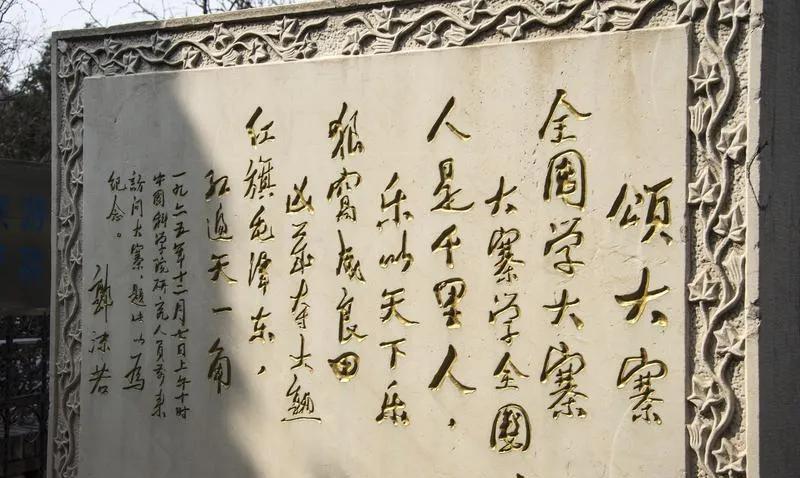 颂大寨
全国学大寨
大寨学全國
人是千里人，
乐以天下乐
狼窝成良田
凶岁夺大熟
红旗毛泽东，
红遍天一角
一九六五年十二月七日上午十时
中国科学院研究人员前来
訪问大寨，题此以为
纪念。
郭沫若